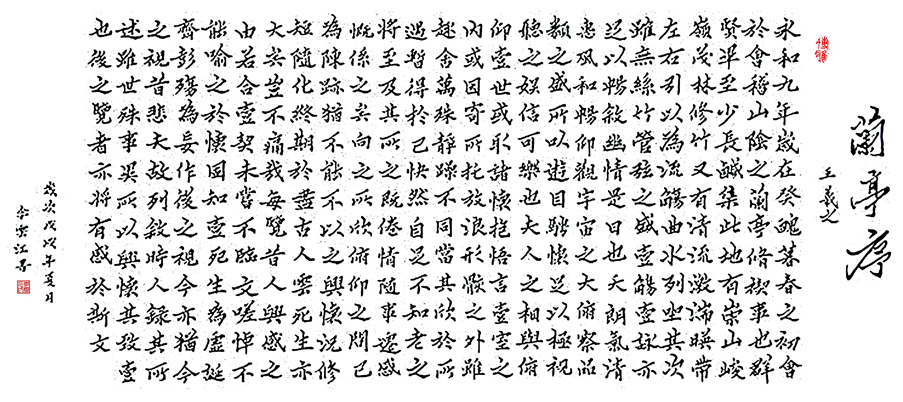 蘭亭序
王羲之
永和九年歲在癸醜暮春之初會
於會稽山陰之蘭亭脩禊事也群
賢畢至少長鹹集此地有崇山峻
嶺茂林修竹又有清流激湍暎帶
左右引以為流觴曲水列坐其次
雖無絲竹管弦之盛壹觴壹詠亦
足以暢敘幽情是日也天朗氣清
惠風和暢仰觀宇宙之大俯察品
類之盛所以遊目騁懷足以極視
聽之娛信可樂也夫人之相與俯
仰壹世或取諸懷抱悟言壹室之
內或因寄所托放浪形骸之外雖
趣舍萬殊靜躁不同當其欣於所
遇暫得於己快然自足不知老之
將至及其所之既倦情隨事遷感
慨係之矣向之所欣俯仰之間已
為陳跡猶不能不以之興懷況修
短隨化終期於盡古人雲死生亦
大矣豈不痛哉每覽昔人興感之
由若合壹契未嘗不臨文嗟悼不
能喻之於懷固知壹死生為虛誕
齊彭殤為妄作後之視今亦猶今
之視昔悲夫故列敘時人錄其所
述雖世殊事異所以興懷其致壹
也後之覽者亦將有感於斯文
歲次戊戌年夏月
雲江書